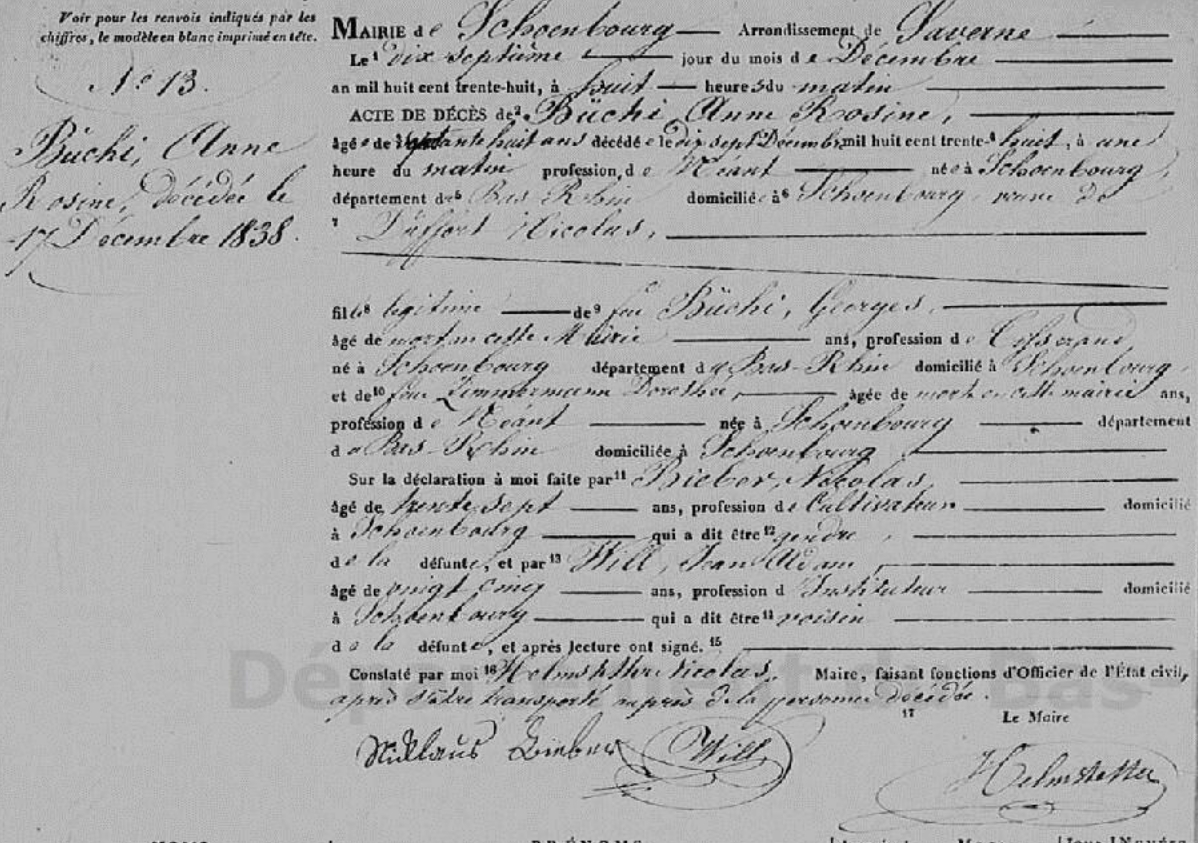 Voir pour les renvois indiqués par les
chiffres, le modèle en blanc imprimé en tête.
N.º 13.
Büchi, Anne
Rosine, décédée le
17 Décembre 1838.
MAIRIE de Schoenbourg Arrondissement de Saverne
Le 1 dix septième jour du mois de Décembre
an mil huit cent trente-huit, à huit heures du matin
ACTE DE DÉCÈS de 2 Büchi, Anne Rosine,
âgée de huit ans décédée le dix sept Décembre mil huit cent trente-4 huit, à une
heure du matin profession de Néant née à Schoenbourg,
département de 5 Bas Rhin domiciliée à 6 Schoenbourg, veuve de
7 Nicolas,
fille 8 légitime de 9 feu Büchi, Georges,
âgé de mort en cette Mairie ans, profession de Tisserand
né à Schoenbourg département du Bas-Rhin domicilié à Schoenbourg
et de 10 feue Zimmermann Dorothée, âgée de morte en cette mairie ans,
profession de Néant née à Schoenbourg département
du Bas-Rhin domiciliée à Schoenbourg
Sur la déclaration à moi faite par 11 Bieber, Nicolas,
âgé de trente sept ans, profession de Cultivateur domicilié
à Schoenbourg qui a dit être 12 gendre,
de la défunte, et par 13 Will, Jean Adam,
âgé de vingt cinq ans, profession d'Instituteur domicilié
à Schoenbourg qui a dit être 14 voisin
de la défunte, et après lecture ont signé. 15
Constaté par moi 16 Helmstetter Nicolas, Maire, faisant fonctions d'Officier de l'État civil,
après s'être transporté auprès de la personne décédée.
17 Le Maire
Niklaus Bieber Will Helmstetter
Département du Bas-